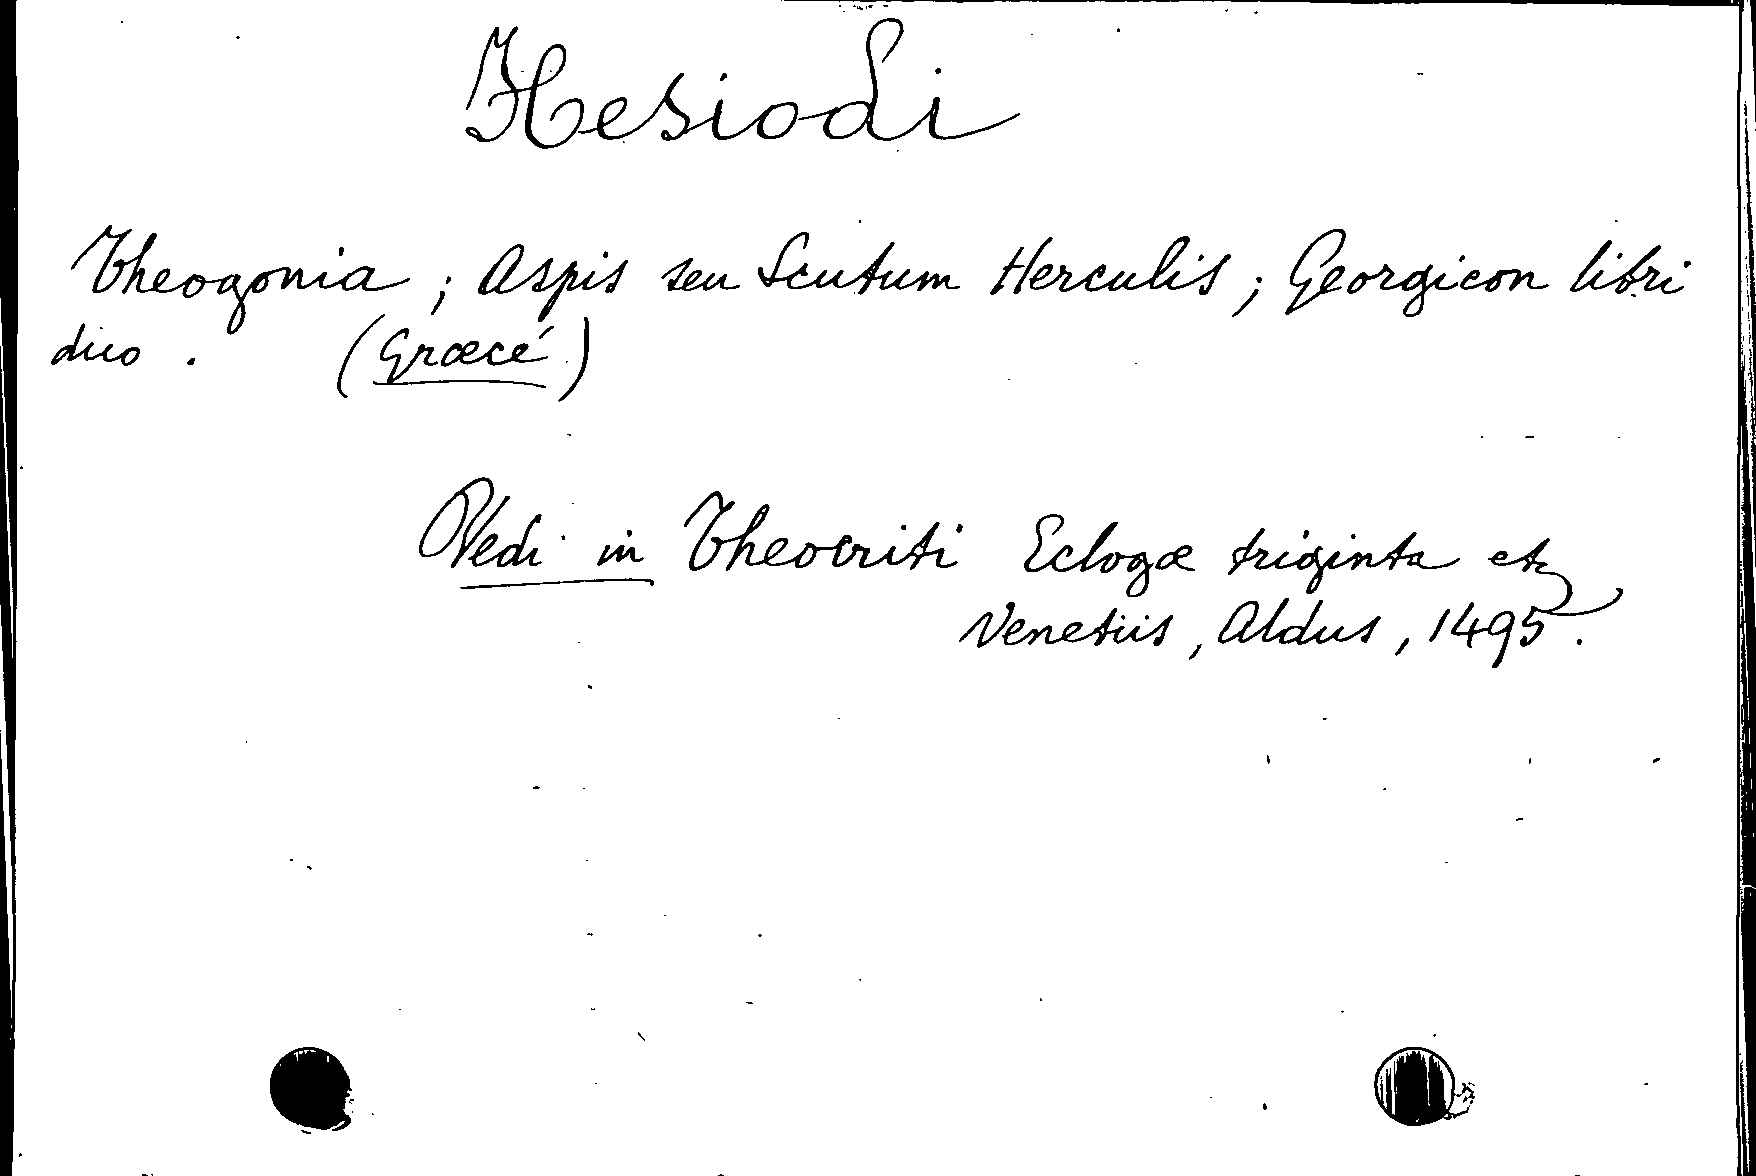 Hesiodi
Theogonia ; Aspis seu Scutum Herculis ; Georgicon libri
duo . (Græcé)
Vedi in Theocriti Eclogæ triginta etc
Venetiis, Aldus, 1495.